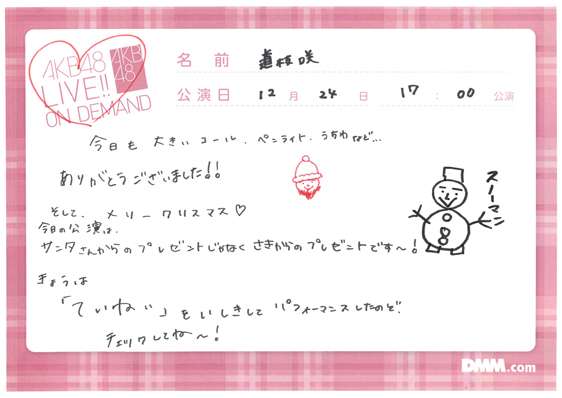 AKB48
LIVE!!
ON DEMAND
AKB
48
名前 直枝咲
公演日 12月24日 17:00公演
今日も 大きいコール、ペンライト、うちわなど...
ありがとうございました!!
そして、メリークリスマス♡
今日の公演は、
サンタさんからのプレゼントじゃなく さきからのプレゼントです〜!
スノーマン
きょうは
「ていねい」をいしきして パフォーマンスしたのぞ、
チェックしてね〜!
DMM.com